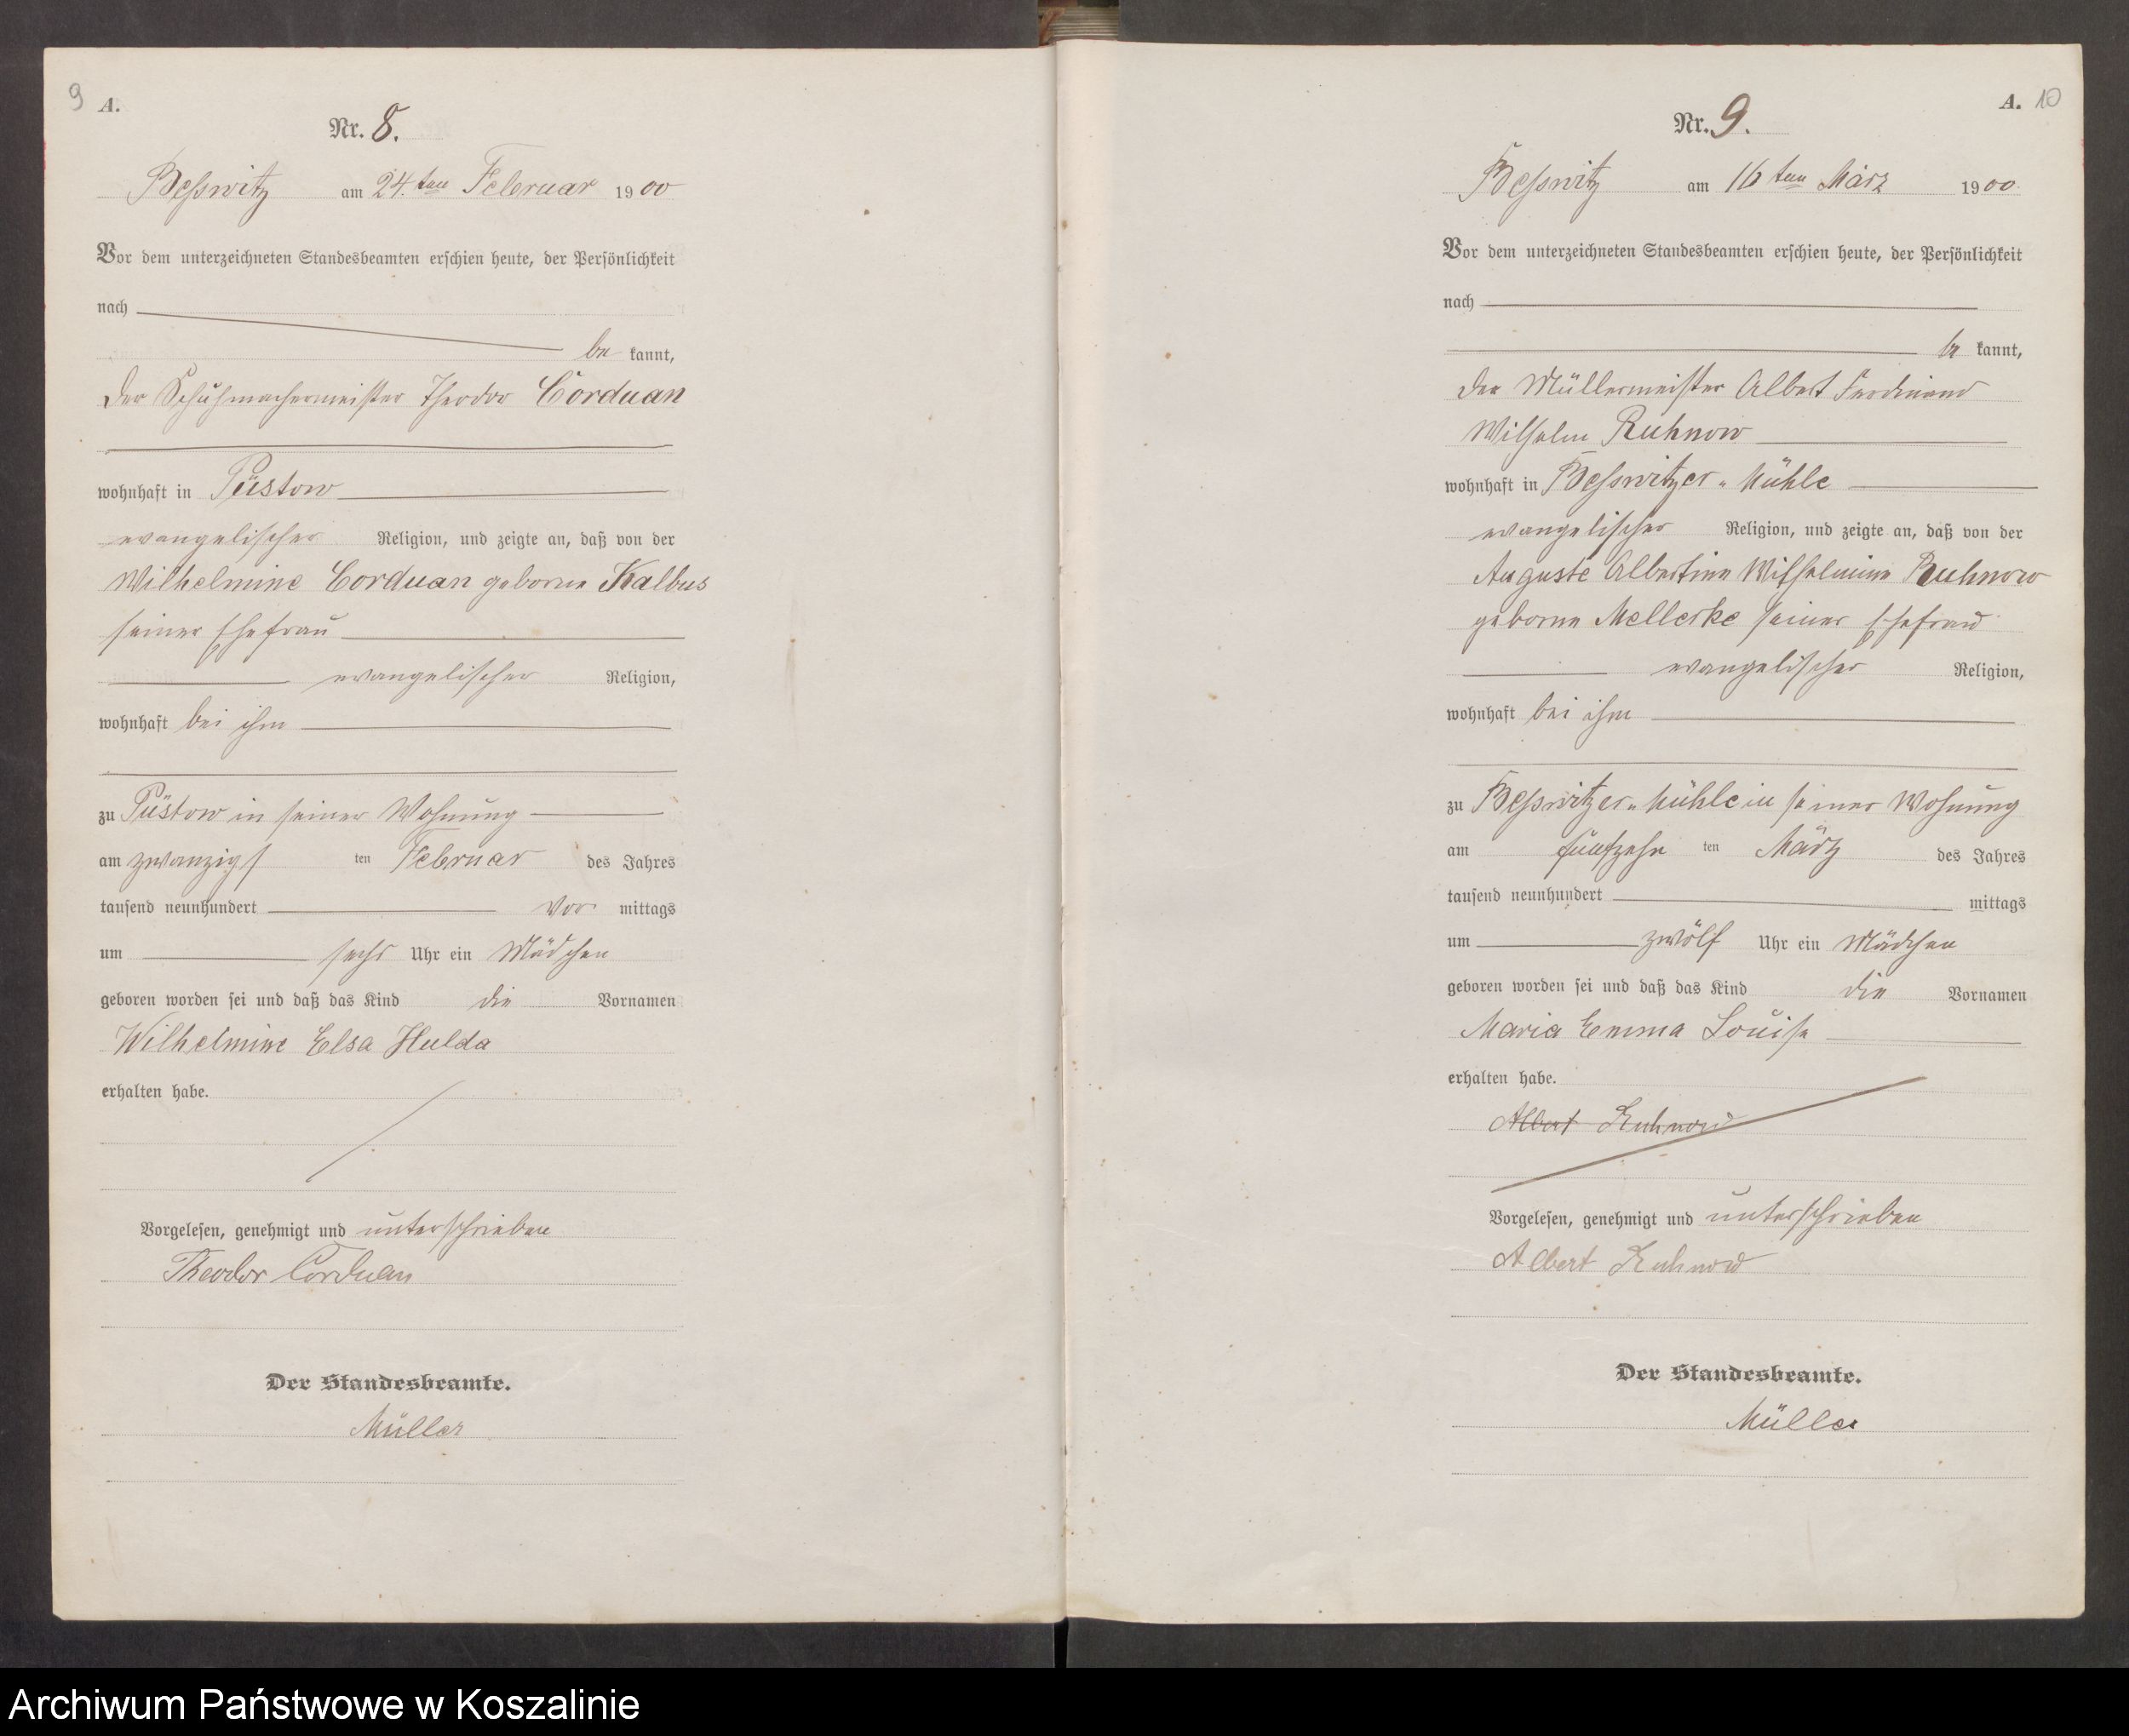 9 A.
Nr. 8.
Beßwitz am 24.ten Februar 1900
Vor dem unterzeichneten Standesbeamten erschien heute, der Persönlichkeit
nach
be kannt,
der Schuhmachermeister Theodor Corduan
wohnhaft in Püstow
evangelischer Religion, und zeigte an, daß von der
Wilhelmine Corduan geborne Kalbus
seiner Ehefrau
evangelischer Religion,
wohnhaft bei ihm
zu Püstow in seiner Wohnung
am zwanzigs ten Februar des Jahres
tausend neunhundert Vor mittags
um sechs Uhr ein Mädchen
geboren worden sei und daß das Kind die Vornamen
Wilhelmine Elsa Hulda
erhalten habe.
Vorgelesen, genehmigt und unterschrieben
Theodor Corduan
Der Standesbeamte.
Müller
A. 10
Nr. 9.
Beßwitz am 16 ten März 1900.
Vor dem unterzeichneten Standesbeamten erschien heute, der Persönlichkeit
nach
be kannt,
der Müllermeister Albert Ferdinand
Wilhelm Ruhnow
wohnhaft in Beßwitzer-Mühle
evangelischer Religion, und zeigte an, daß von der
Auguste Albertine Wilhelmine Ruhnow
geborne Mellerke seiner Ehefrau
evangelischer Religion,
wohnhaft bei ihm
zu Beßwitzer-Mühle in seiner Wohnung
am fünfzehn ten März des Jahres
tausend neunhundert mittags
um zwölf Uhr ein Mädchen
geboren worden sei und daß das Kind die Vornamen
Maria Emma Louise
erhalten habe.
Albert Ruhnow
Vorgelesen, genehmigt und unterschrieben
Albert Ruhnow
Der Standesbeamte.
Müller
Archiwum Państwowe w Koszalinie